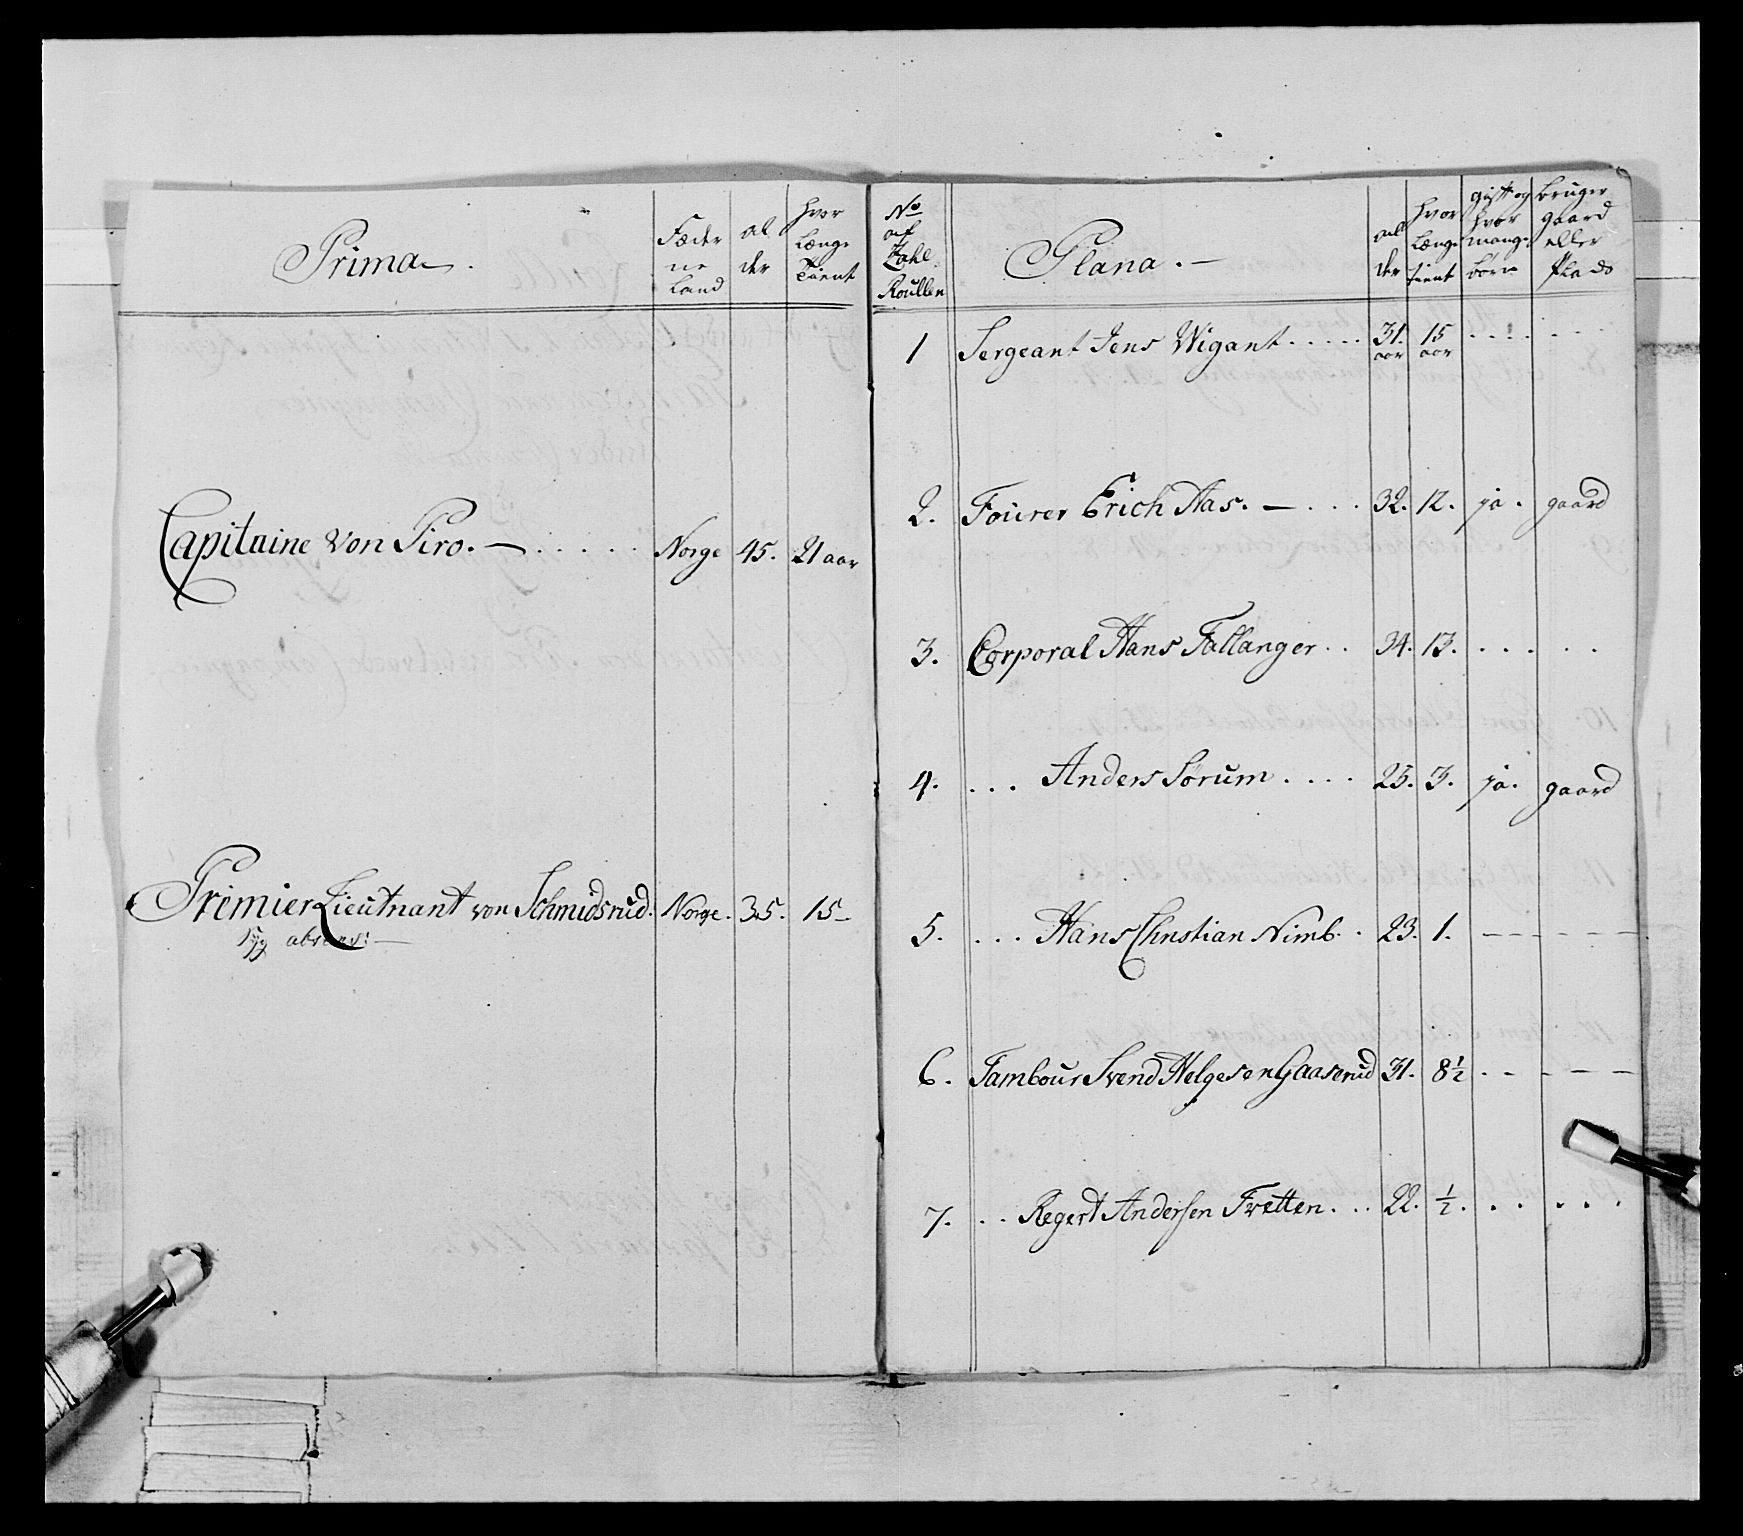 Prima.
Fæder
ne
Land
al
der
hvor
Længe
tient
Capitaine von Piro. — . . . . . Norge 45. 21 aar
Premier Lieutnant von Schmidsrud. Norge. 35. 15
syg absens: —
No
af
Zahl
Roullen
Plana. —
al
der
hvor
Længe
tient
gift og
hvor
mange
børn
bruger
gaard
eller
Plads
1 Sergeant Jens Wigant . . . . . 31. 15 . . . . .
aar aar
2. Fourer Erich Aas. — . . . 32. 12. ja. gaard
3. Corporal Hans Fallanger . . 34. 13. . . . . .
4. . . . Anders Sørum . . . . 25. 3. ja. gaard
5. . . . Hans Christian Nimb. . 23. 1. — — — — —
6. Tambour Svend Helgesen Gaaserud 31. 8½ . — — — —
7. . . Regert Andersen Tvetten . . . 22. ½. . . . .